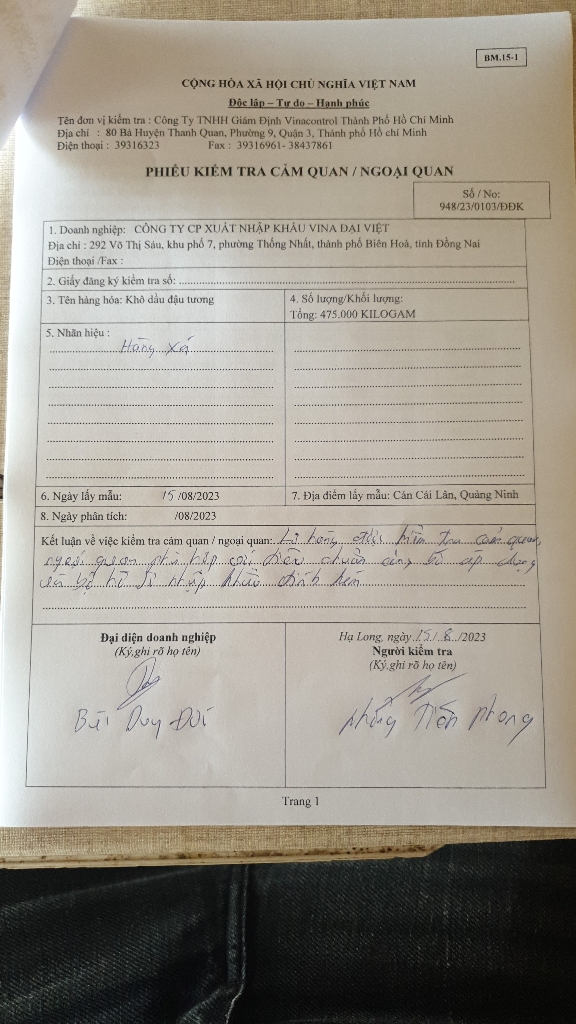 BM.15-1
CỘNG HÒA XÃ HỘI CHỦ NGHĨA VIỆT NAM
Độc lập – Tự do – Hạnh phúc
Tên đơn vị kiểm tra : Công Ty TNHH Giám Định Vinacontrol Thành Phố Hồ Chí Minh
Địa chỉ : 80 Bà Huyện Thanh Quan, Phường 9, Quận 3, Thành phố Hồ chí Minh
Điện thoại : 39316323 Fax : 39316961- 38437861
PHIẾU KIỂM TRA CẢM QUAN / NGOẠI QUAN
Số / No:
948/23/0103/ĐĐK
1. Doanh nghiệp: CÔNG TY CP XUẤT NHẬP KHẨU VINA ĐẠI VIỆT
Địa chỉ : 292 Võ Thị Sáu, khu phố 7, phường Thống Nhất, thành phố Biên Hoà, tỉnh Đồng Nai
Điện thoại /Fax :
2. Giấy đăng ký kiểm tra số:
3. Tên hàng hóa: Khô dầu đậu tương
4. Số lượng/Khối lượng:
Tổng: 475.000 KILOGAM
5. Nhãn hiệu :
Hàng xá
6. Ngày lấy mẫu: 15/08/2023
7. Địa điểm lấy mẫu: Cản Cái Lân, Quảng Ninh
8. Ngày phân tích: /08/2023
Kết luận về việc kiểm tra cảm quan / ngoại quan: Lô hàng được kiểm tra cảm quan,
ngoại quan phù hợp với tiêu chuẩn công bố áp dụng
và hồ sơ nhập khẩu đính kèm
Đại diện doanh nghiệp
(Ký,ghi rõ họ tên)
Bùi Duy Đới
Hạ Long, ngày 15/8/2023
Người kiểm tra
(Ký,ghi rõ họ tên)
Tiến Phong
Trang 1